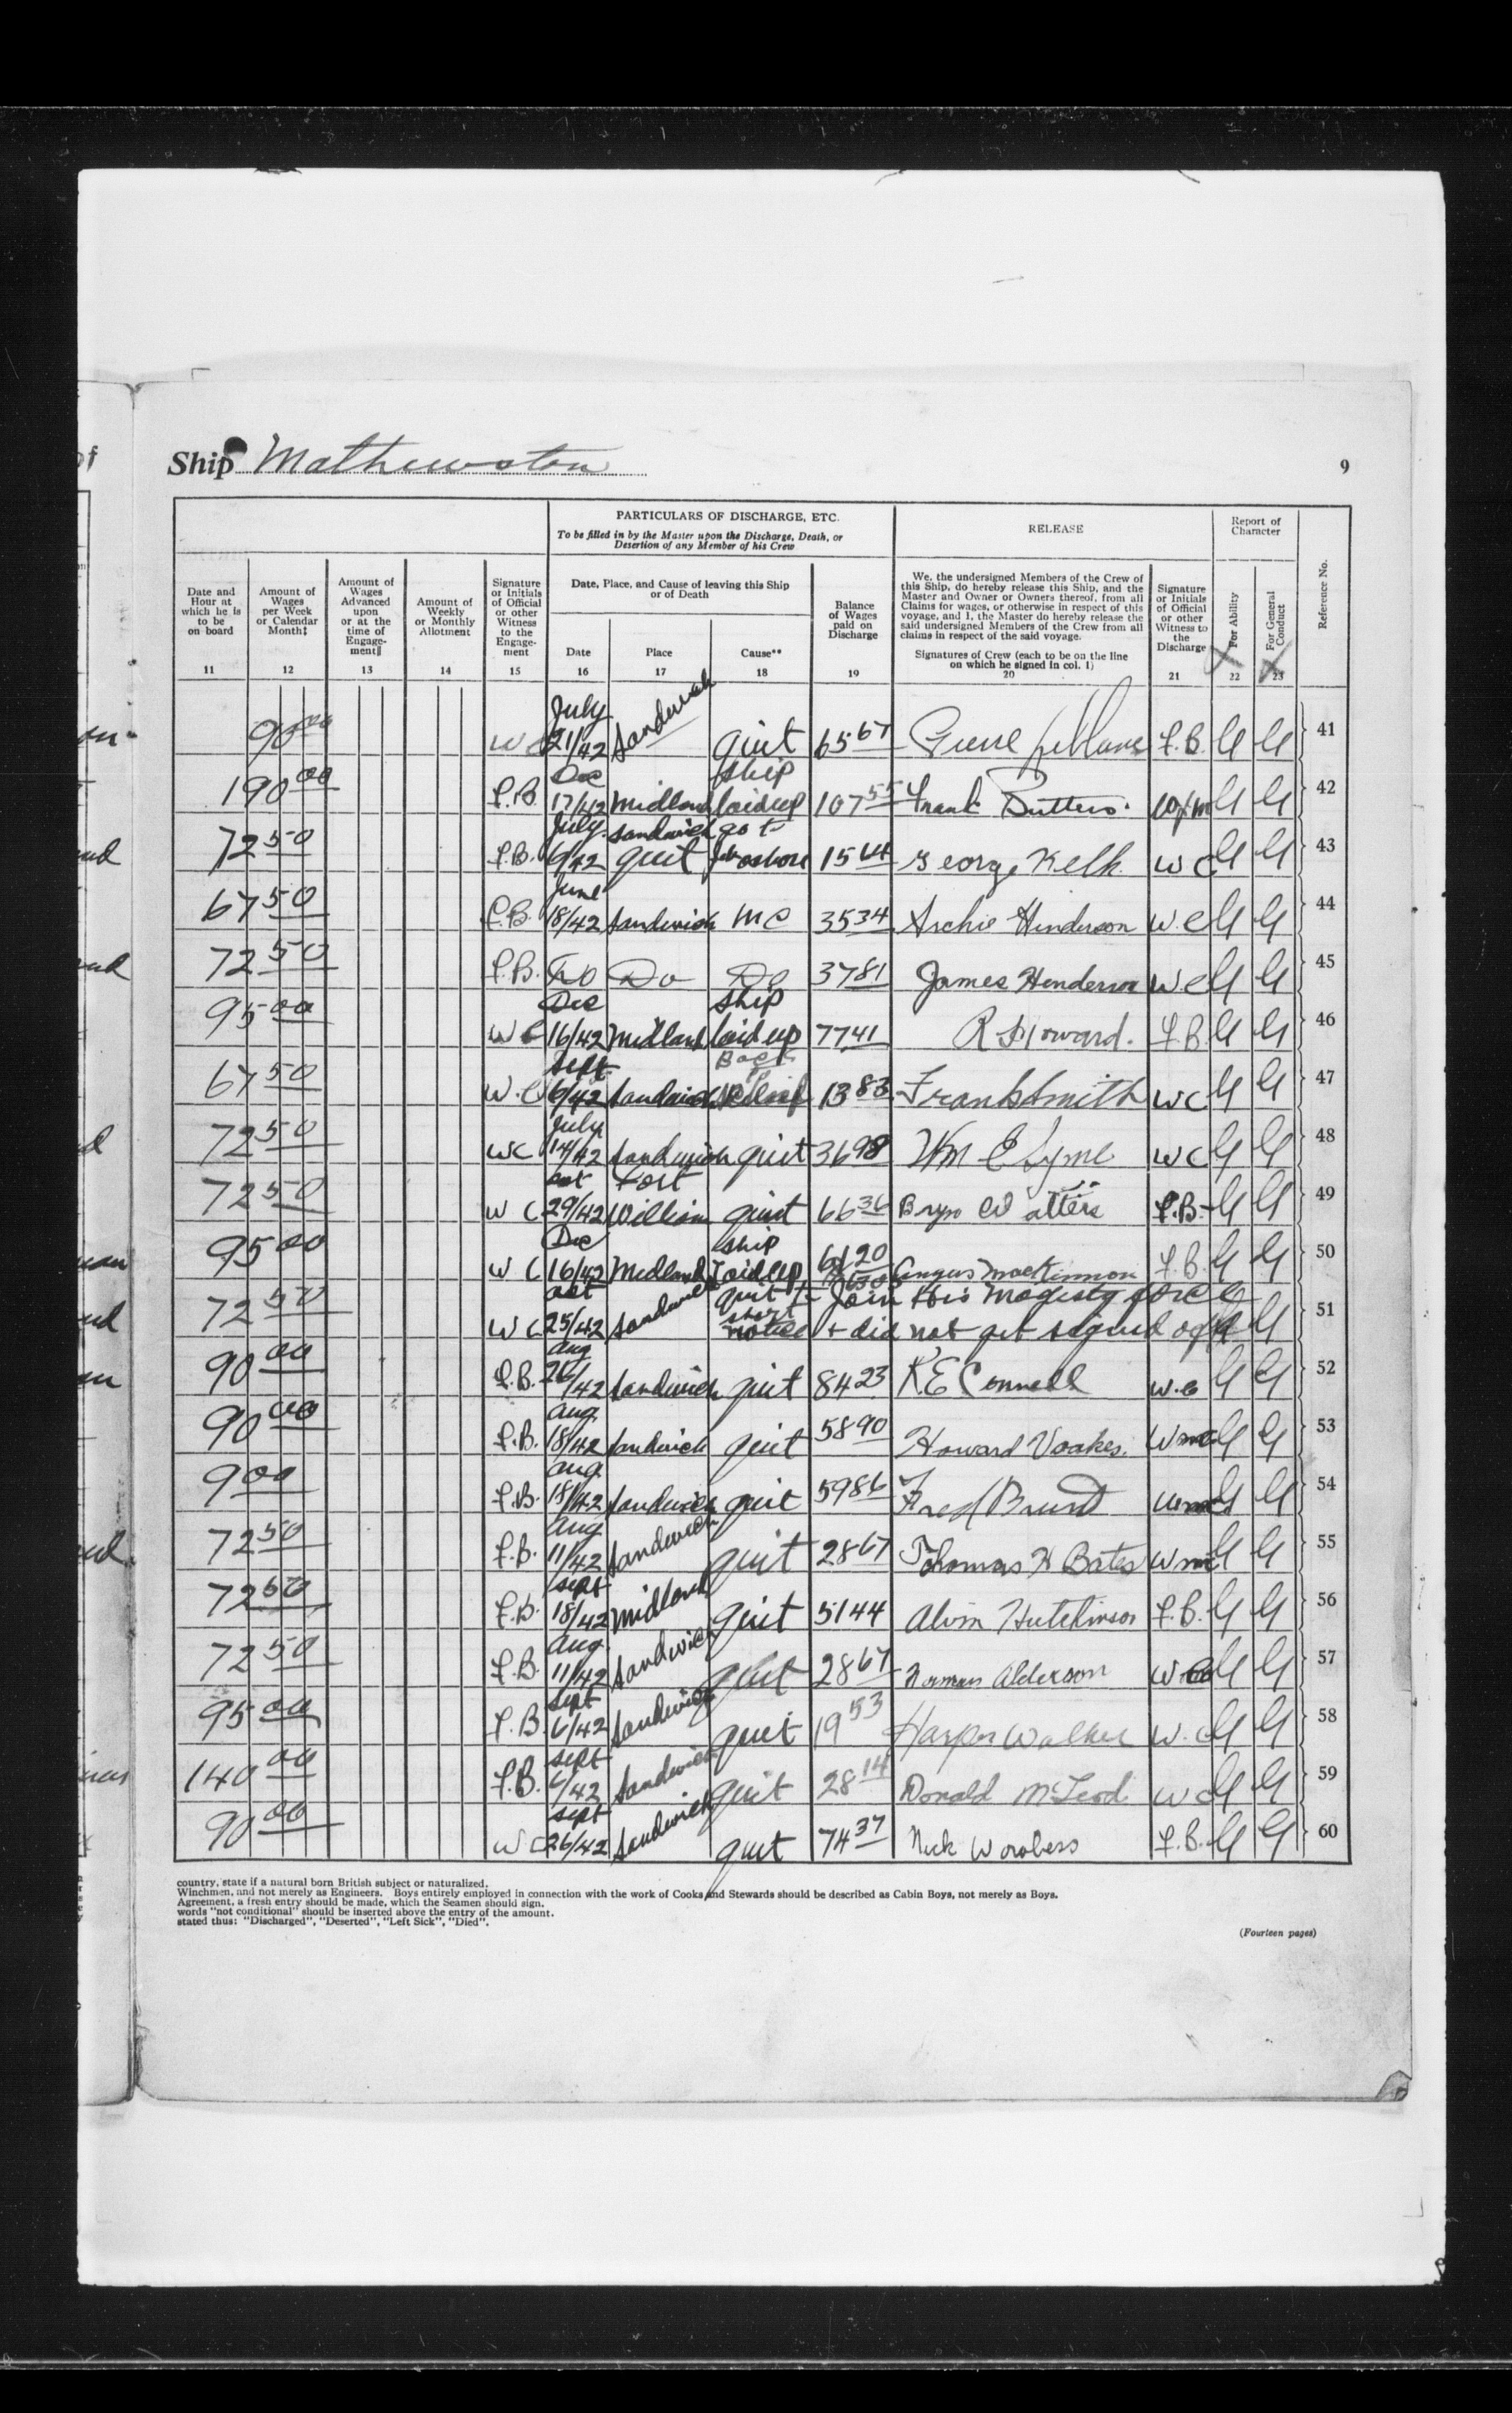 Ship Mathewston
9
PARTICULARS OF DISCHARGE, ETC.
To be filled in by the Master upon the Discharge, Death, or
Desertion of any Member of his Crew
RELEASE
Report of
Character
Reference No.
Date and
Hour at
which he is
to be
on board
Amount of
Wages
per Week
or Calendar
Month‡
Amount of
Wages
Advanced
upon
or at the
time of
Engage-
ment‖
Amount of
Weekly
or Monthly
Allotment
Signature
or Initials
of Official
or other
Witness
to the
Engage-
ment
Date, Place, and Cause of leaving this Ship
or of Death
Date
Place
Cause**
Balance
of Wages
paid on
Discharge
We, the undersigned Members of the Crew of
this Ship, do hereby release this Ship, and the
Master and Owner or Owners thereof, from all
Claims for wages, or otherwise in respect of this
voyage, and I, the Master do hereby release the
said undersigned Members of the Crew from all
claims in respect of the said voyage.
Signatures of Crew (each to be on the line
on which he signed in col. 1)
Signature
or Initials
of Official
or other
Witness to
the
Discharge
For Ability
For General
Conduct
11 12 13 14 15 16 17 18 19 20 21 22 23
90 00 W C July 21/42 Sandwich quit 65 67 F.B. G G 41
190 00 F.B. Dec 17/42 Midland ship laid up 107 55 Frank Butters G G 42
72 50 F.B. July 6/42 sandwich quit go to job ashore 15 64 George Kelh W C G G 43
67 50 F.B. June 18/42 Sandwich M C 35 34 Archie Henderson W.C G G 44
72 50 F.B. Do Do Do 37 81 James Henderson W C G G 45
95 00 W C Dec 16/42 Midland ship laid up 77 41 R Howard. F.B. G G 46
67 50 W.C Sept 6/42 Sandwich Back School 13 83 Frank Smith W C G G 47
72 50 W C July 14/42 Sandwich quit 36 98 Wm E Syme W C G G 48
72 50 W C Oct 29/42 Fort William quit 66 36 Bryn Watters F.B. G G 49
95 00 W C Dec 16/42 Midland ship laid up 61 20 Angus MacKinnon F.B. G G 50
72 50 W C Oct 25/42 Sandwich quit to Join His Majesty force
short notice + did not get signed off G G 51
90 00 F.B. Aug 26/42 Sandwich quit 84 23 K. E Connell W.C G G 52
90 00 F.B. Aug 18/42 Sandwich quit 58 90 Howard Voakes. G G 53
9 00 F.B. Aug 18/42 Sandwich quit 59 86 Fred Brunt G G 54
72 50 F.B. Aug 11/42 Sandwich quit 28 67 Thomas H Bates G G 55
72 50 F.B. Sept 18/42 Midland quit 51 44 Alvin Hutchinson F.B. G G 56
72 50 F.B. Aug 11/42 Sandwich quit 28 67 Norman Alderson G G 57
95 00 F.B. Sept 6/42 Sandwich quit 19 53 Harper Walker W.C G G 58
140 00 F.B. Sept 6/42 Sandwich quit 28 14 Donald McLeod W C G G 59
90 00 W C Sept 26/42 Sandwich quit 74 37 Nick Worobess F.B. G G 60
country, state if a natural born British subject or naturalized.
Winchmen, and not merely as Engineers. Boys entirely employed in connection with the work of Cooks and Stewards should be described as Cabin Boys, not merely as Boys.
Agreement, a fresh entry should be made, which the Seamen should sign.
words "not conditional" should be inserted above the entry of the amount.
stated thus: "Discharged", "Deserted", "Left Sick", "Died".
(Fourteen pages)